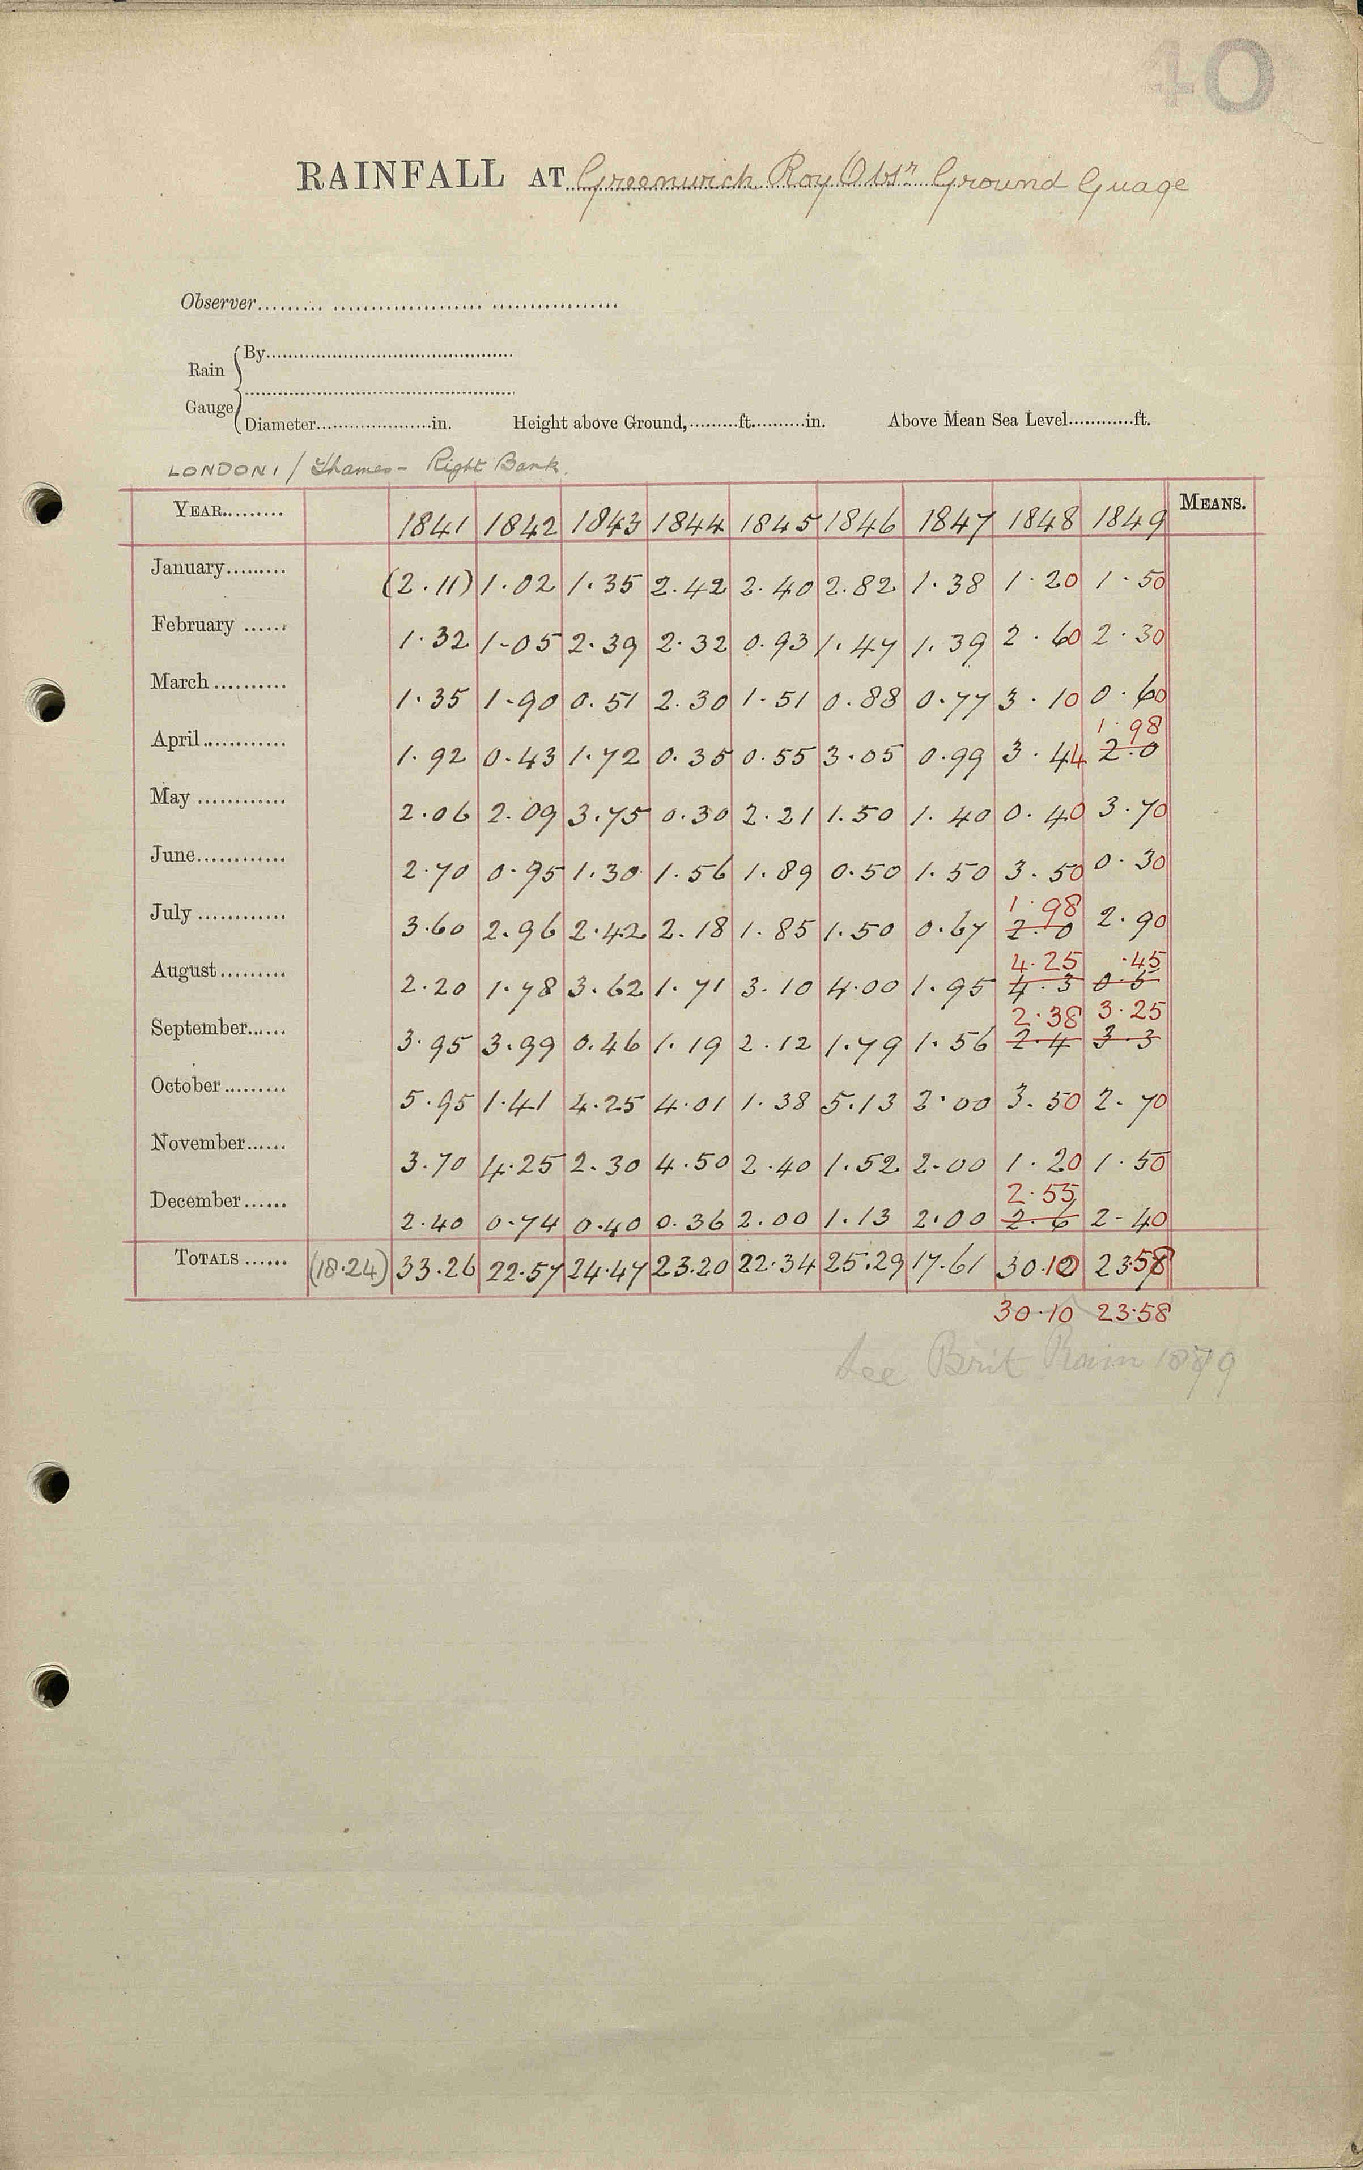 40
RAINFALL AT Greenwich Roy Obsr Ground Guage
Observer
By
Rain
Gauge
Diameter in. Height above Ground, ft. in. Above Mean Sea Level ft.
LONDON 1 / Thames - Right Bank.
YEAR 1841 1842 1843 1844 1845 1846 1847 1848 1849 MEANS.
January (2.11) 1.02 1.35 2.42 2.40 2.82 1.38 1.20 1.50
February 1.32 1.05 2.39 2.32 0.93 1.47 1.39 2.60 2.30
March 1.35 1.90 0.51 2.30 1.51 0.88 0.77 3.10 0.60
1.98
April 1.92 0.43 1.72 0.35 0.55 3.05 0.99 3.44 2.0
May 2.06 2.09 3.75 0.30 2.21 1.50 1.40 0.40 3.70
June 2.70 0.95 1.30 1.56 1.89 0.50 1.50 3.50 0.30
1.98
July 3.60 2.96 2.42 2.18 1.85 1.50 0.67 2.0 2.90
4.25 .45
August 2.20 1.78 3.62 1.71 3.10 4.00 1.95 4.3 0.5
2.38 3.25
September 3.95 3.99 0.46 1.19 2.12 1.79 1.56 2.4 3.3
October 5.95 1.41 4.25 4.01 1.38 5.13 2.00 3.50 2.70
November 3.70 4.25 2.30 4.50 2.40 1.52 2.00 1.20 1.50
2.55
December 2.40 0.74 0.40 0.36 2.00 1.13 2.00 2.6 2.40
TOTALS (18.24) 33.26 22.57 24.47 23.20 22.34 25.29 17.61 30.10 23.58
30.10 23.58
See Brit Rain 1879